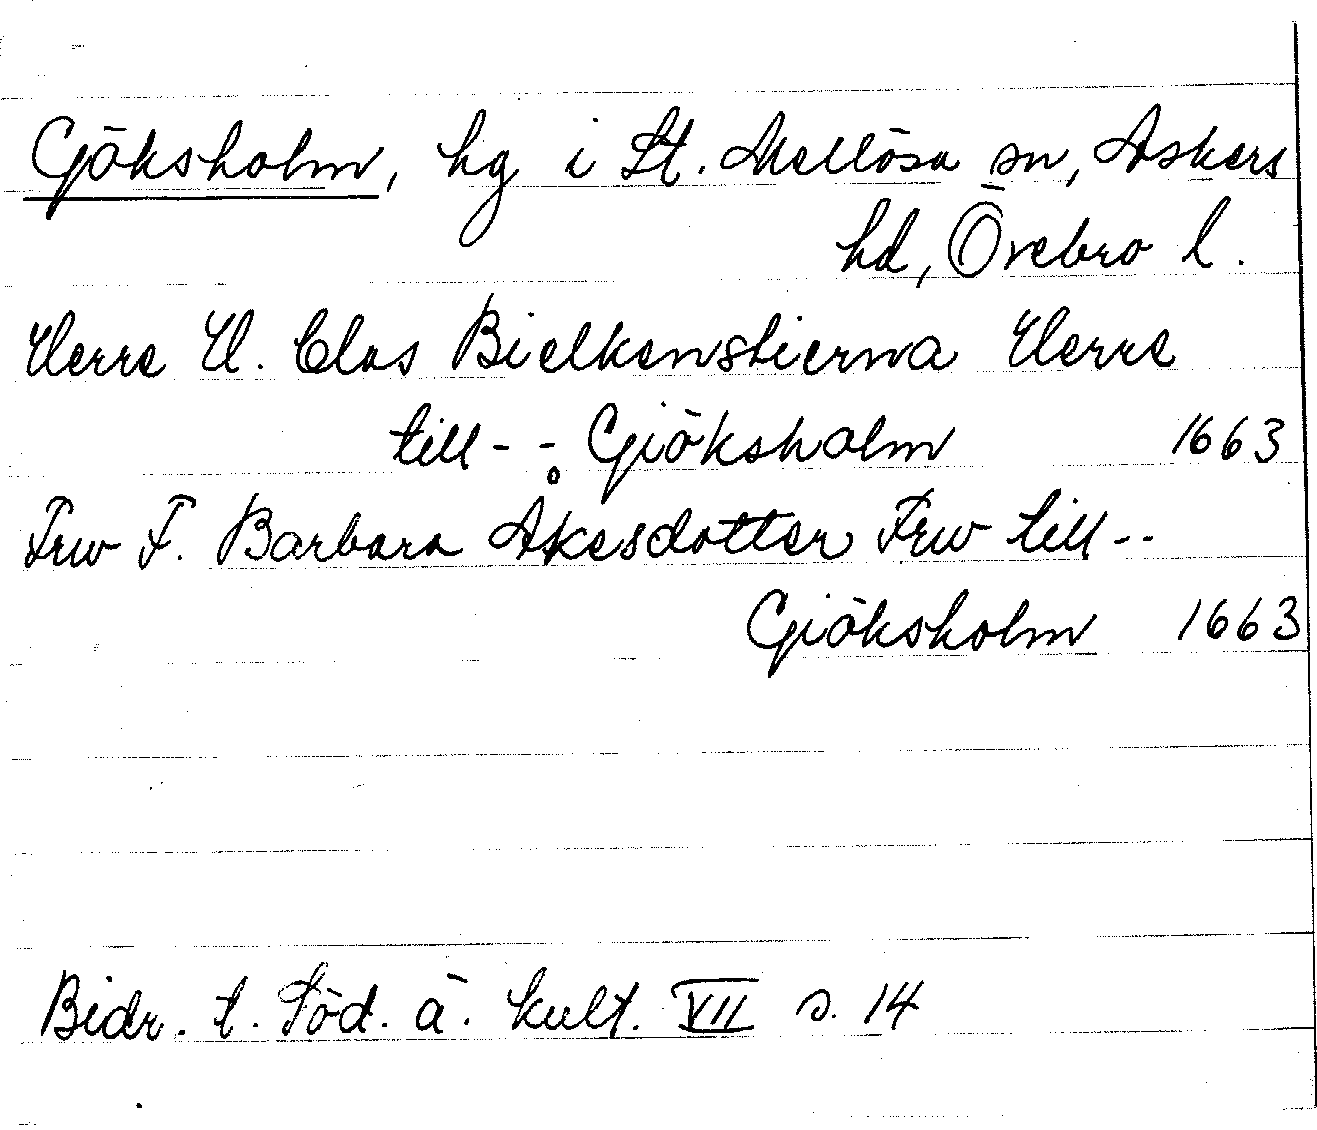 Göksholm, hg i St. Mellösa sn, Askers
hd, Örebro l.
Herre H. Clas Bielkenstierna Herre
till - - Giöksholm 1663
Frw F. Barbara Åkesdotter Frw till - -
Giöksholm 1663
Bidr. t. Söd. ä. kult. VII s. 14